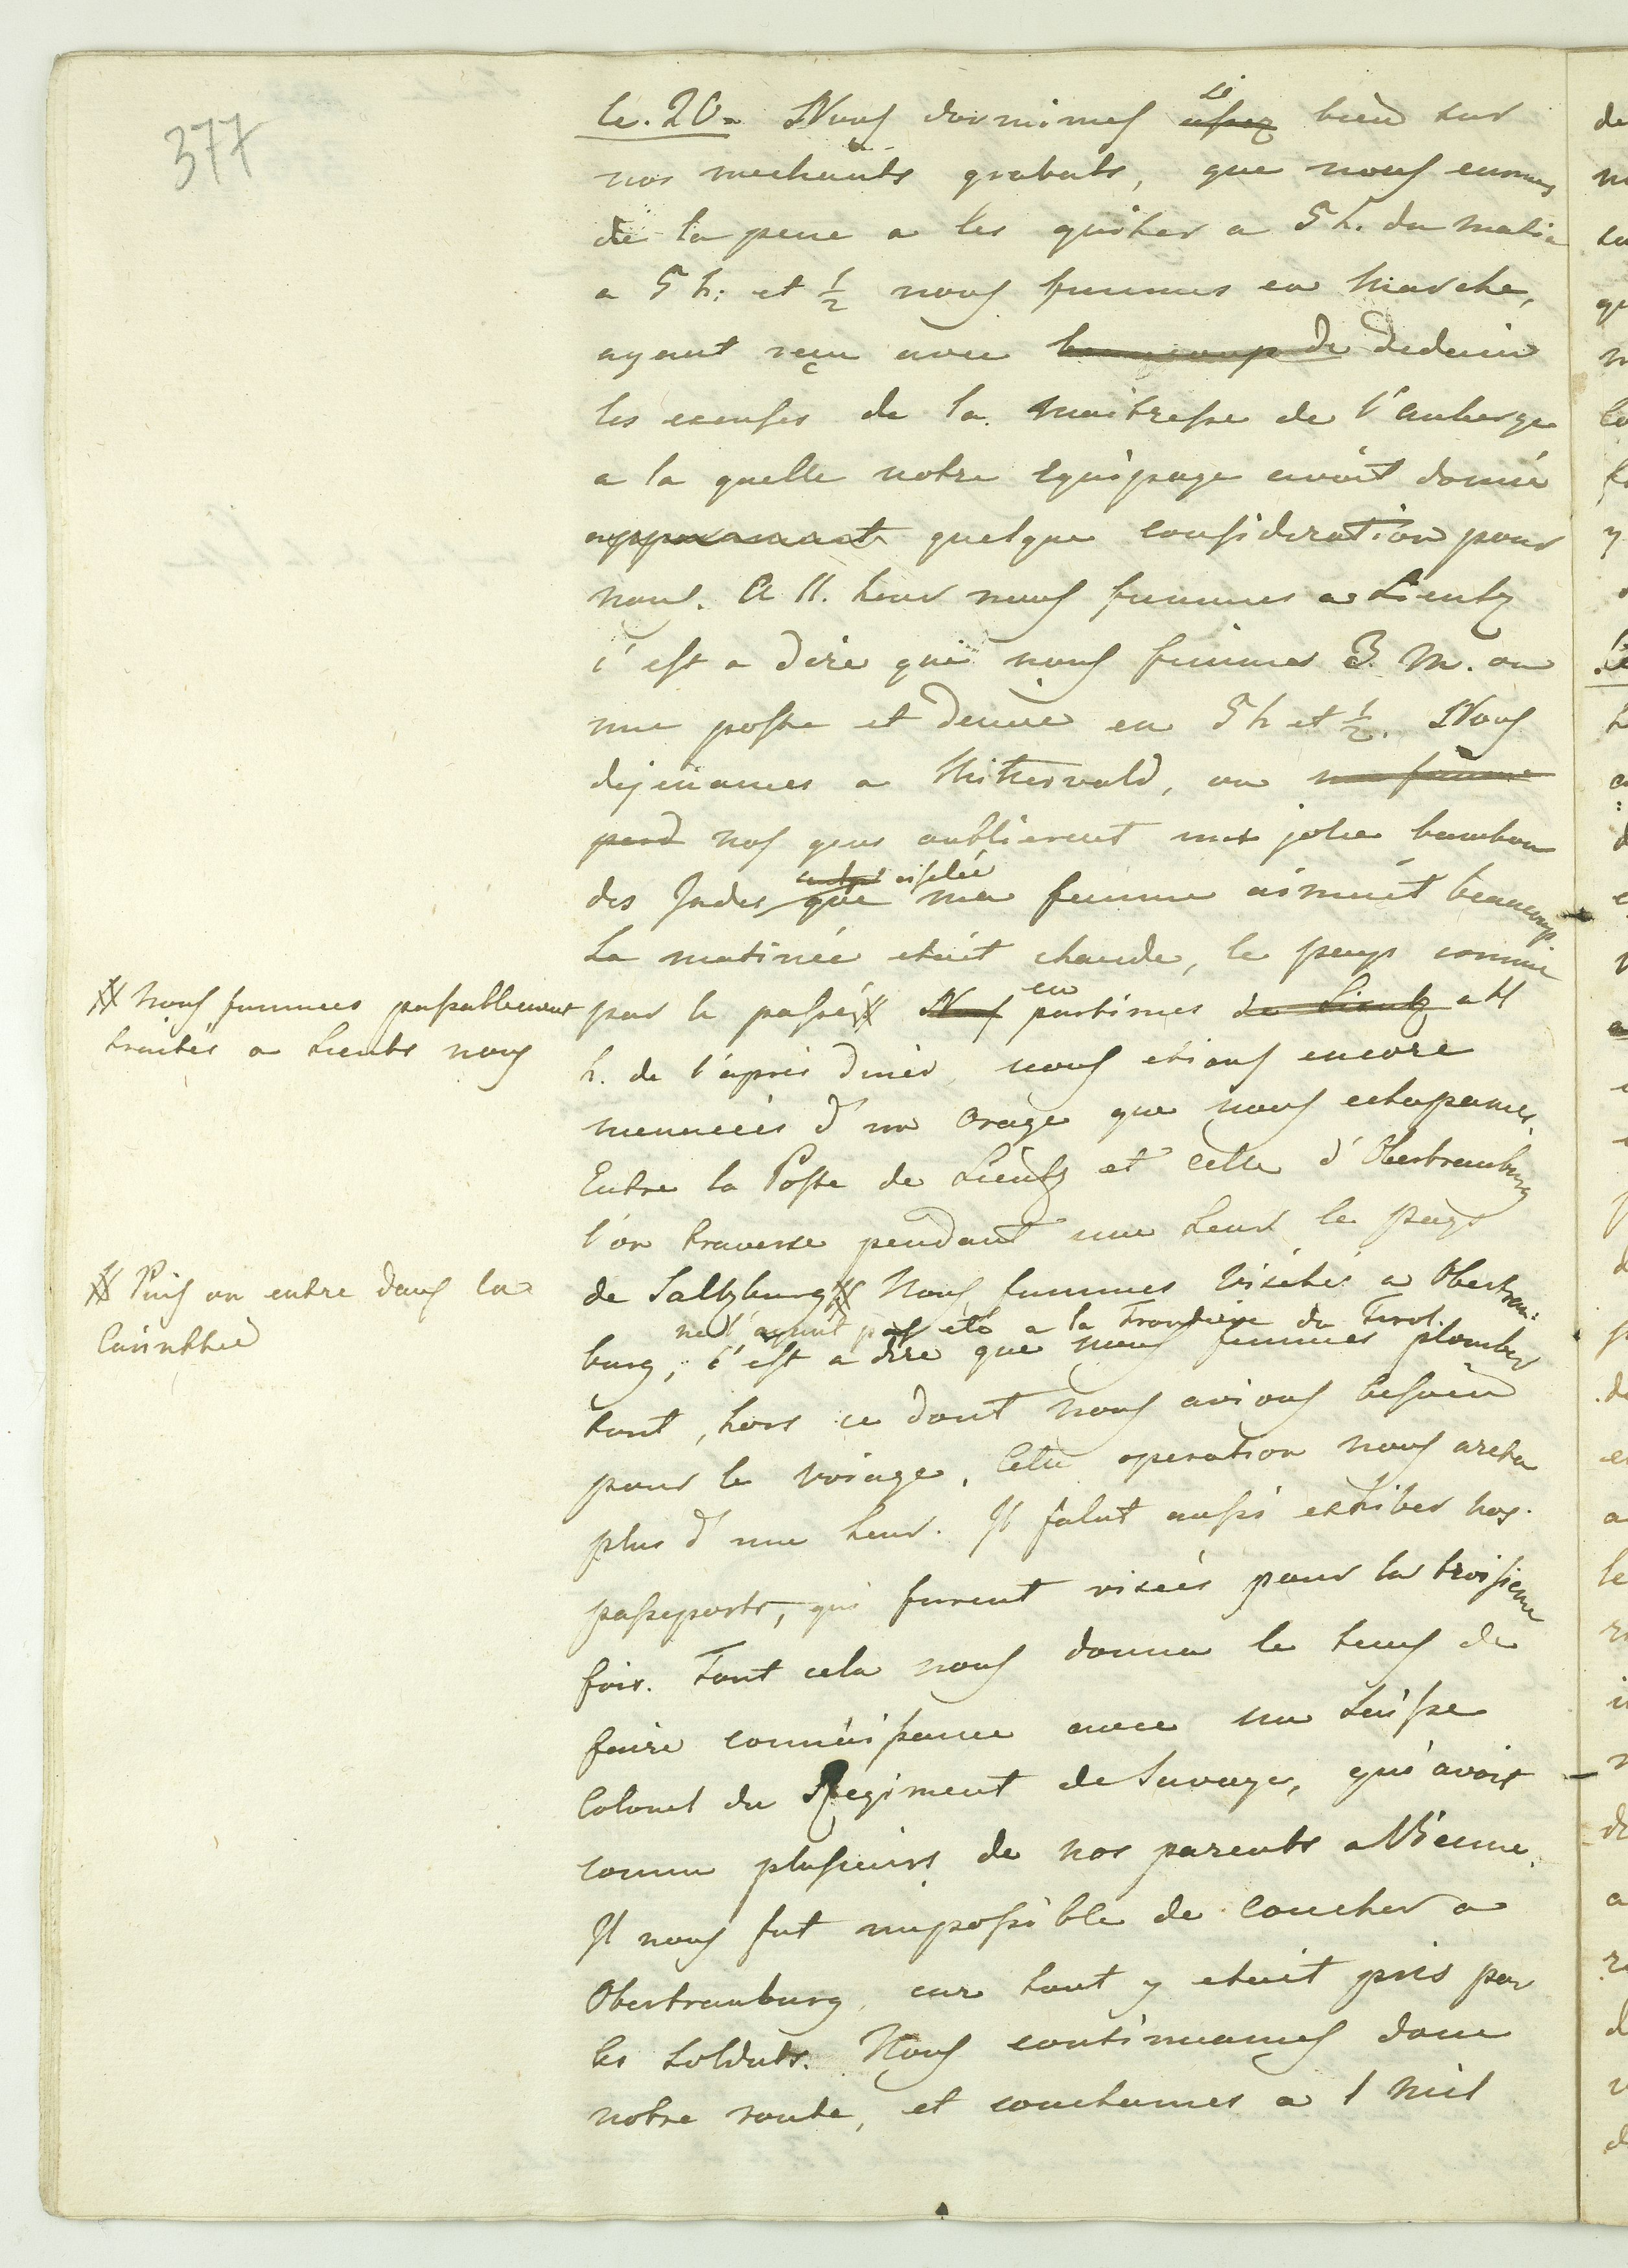 377
le. 20. Nous dormimes si assez bien sur
nos mechants grabats, que nous eumes
de la peine a les quiter a 5 h. du matin
a 5 h: et ½ nous fumes en marche,
ayant reçu avec beaucoup de dedain
les excuses de la maitresse de l'auberge
a la quelle notre equipage avoit donné
apparament quelque consideration pour
nous. A 11. heur nous fumes a Lientz
c'est a dire que nous fimes 3. M. ou
une poste et demie en 5 h et ½. Nous
dejeunames a Mitterwald, ou ma femme
perd nos gens oublierent une jolie bambou
des Indes ciselée que ma femme aimoit beaucoup.
La matinée etoit chaude, le pays comme
par le passé # Nous en partimes de Lientz a 4
# Nous fumes passablement
traités a Lientz nous
h. de l'après diner, nous etions encore
menacés d'un orage que nous echapames.
Entre la Poste de Lientz et celle d'Obertrauburg
l'on traverse pendant une heur le pays
de Saltzburg # Nous fumes visités a Obertrau:
# Puis on entre dans la
Carinthie
ne l'ayant pas été a la Frontière du Tirol.
burg, c'est a dire que nous fumes plomber
tout, hors ce dont nous avions besoin
pour le voiage. Cette operation nous areta
plus d'une heur. Il falut aussi exhiber nos
passeports, qui furent visées pour la troisieme
fois. Tout cela nous donna le tems de
faire connaissance avec un Suisse
Colonel du Regiment de Savoye, qui avoit
connu plusieurs de nos parents a Vienne.
Il nous fut impossible de coucher a
Obertrauburg, car tout y etoit pris par
les soldats. Nous continuames donc
notre route, et couchames a 1 mil